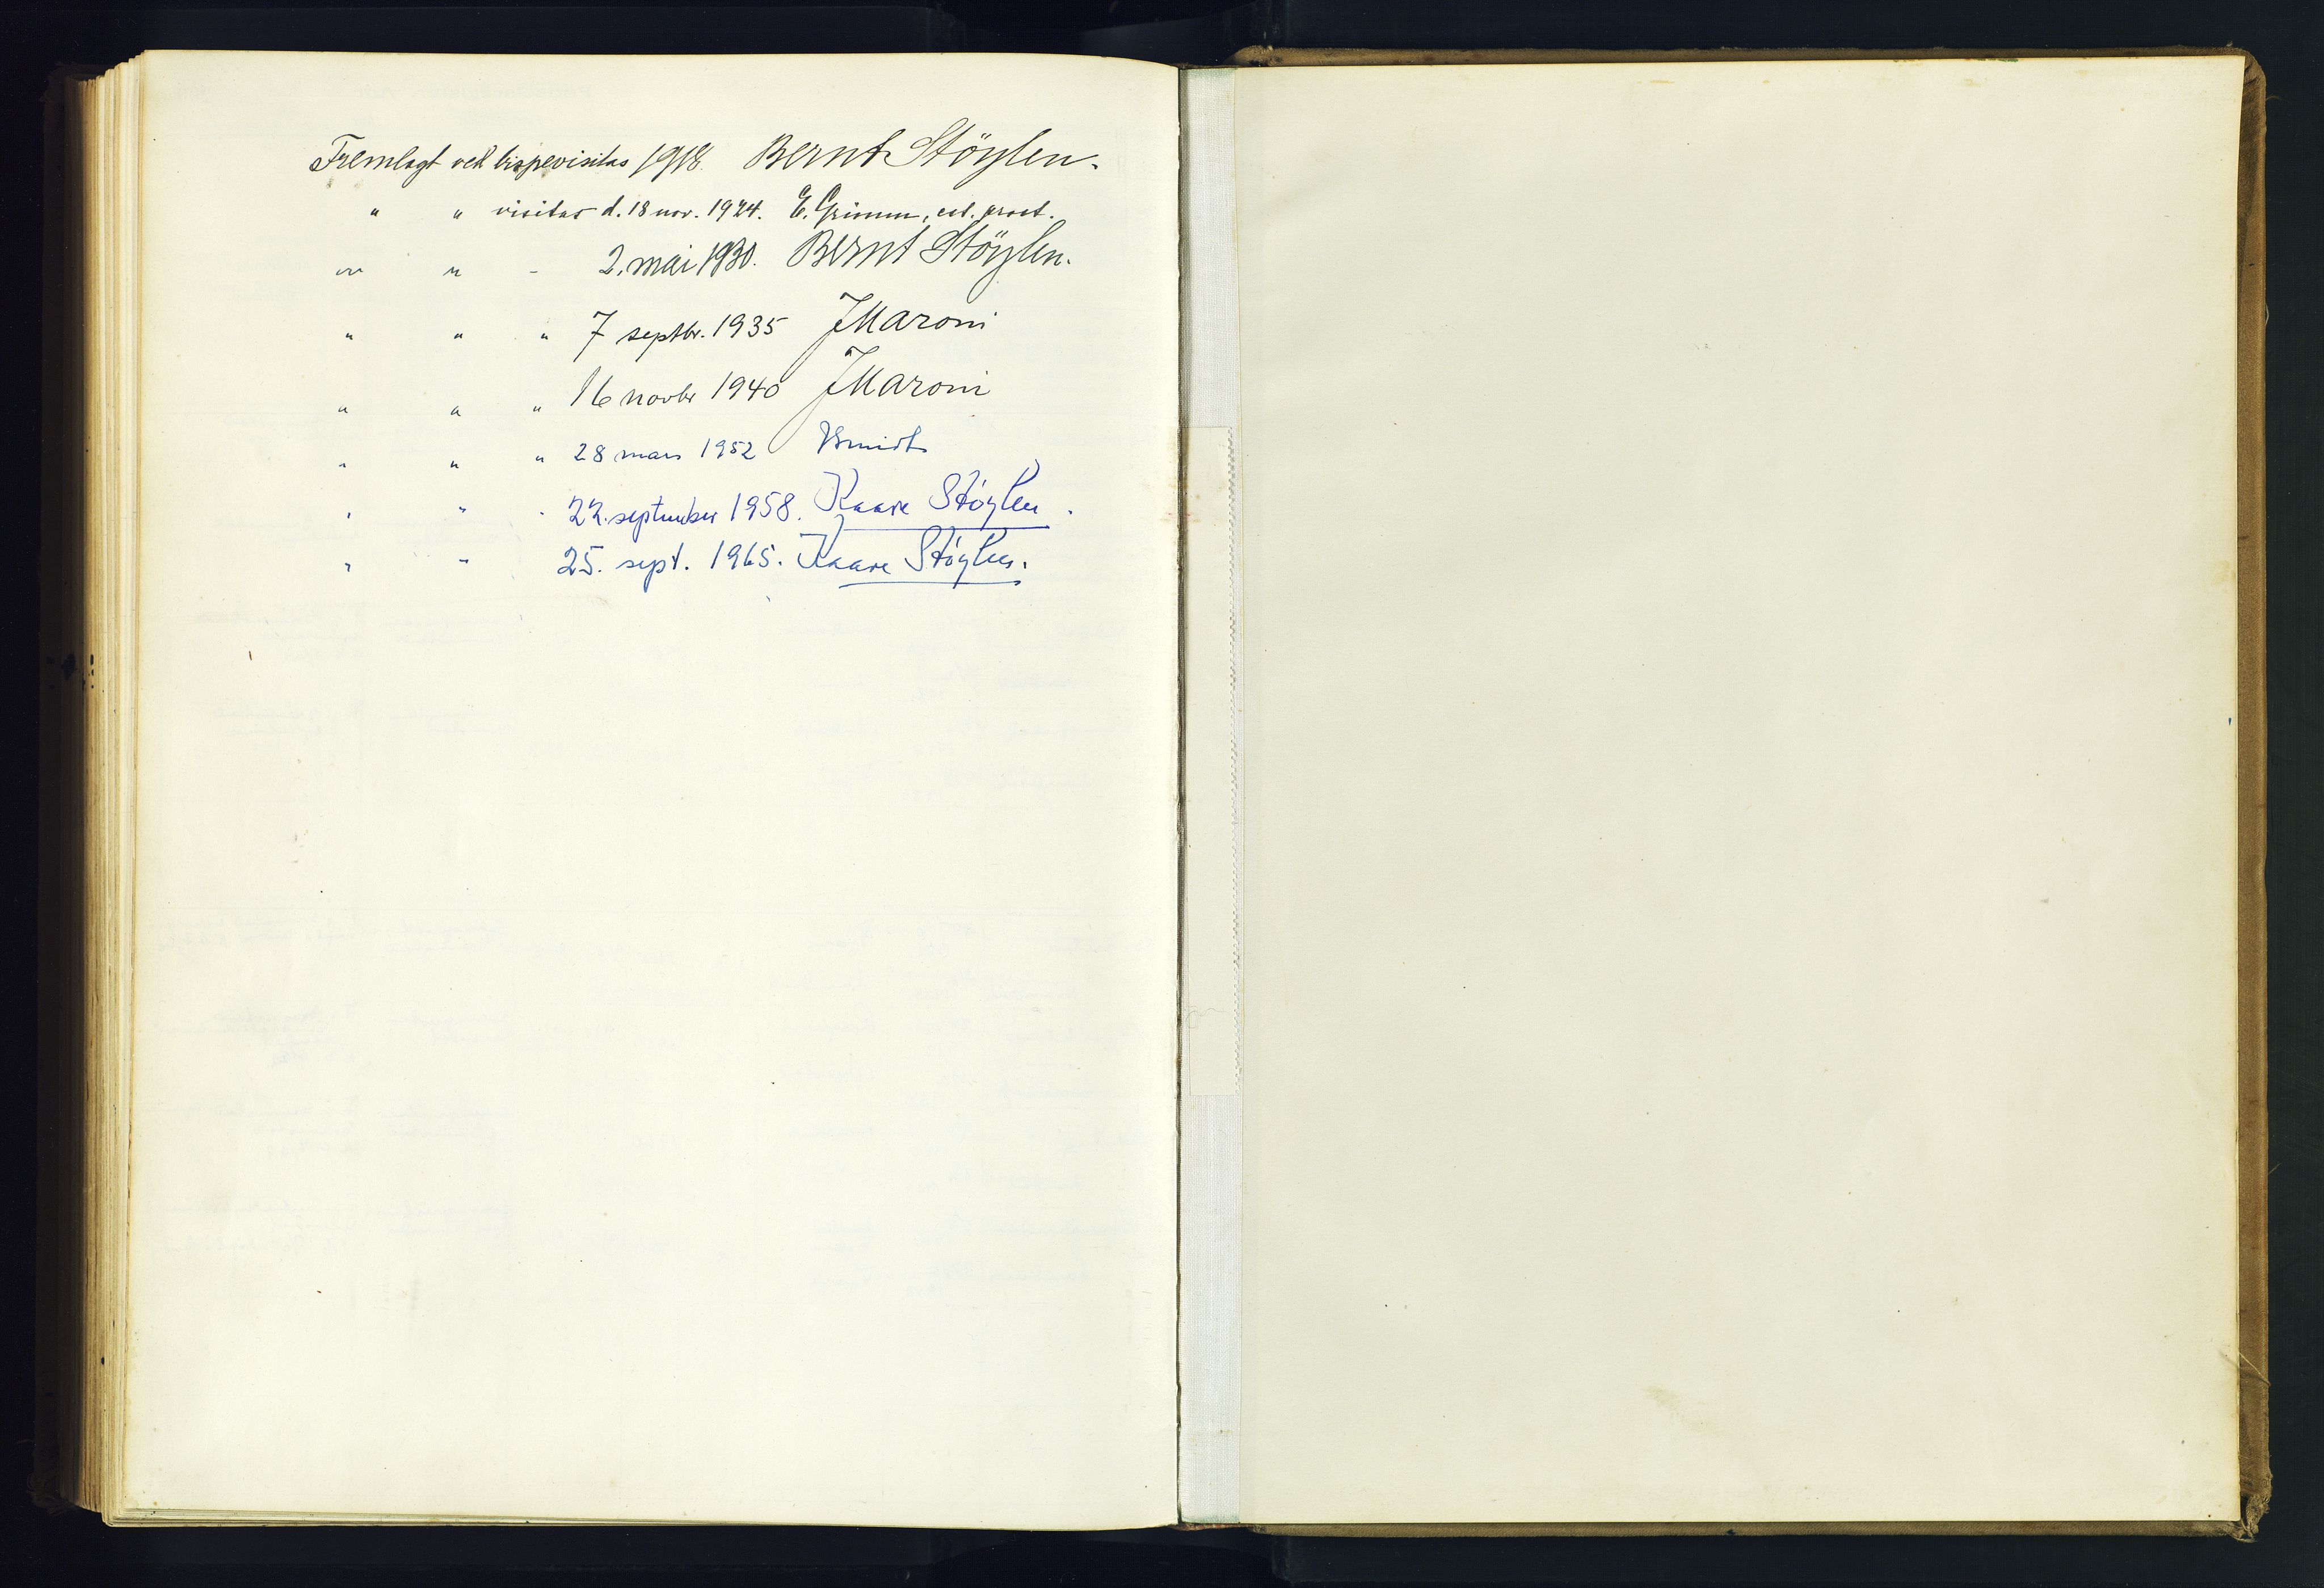 Fremlagt ved bispevisitas 1918. Bernt Støylen.
" " visitas d. 18 nov. 1924. E. Grimm, cst. prost.
" " - 2. mai 1930. Bernt Støylen.
" " " 7 septbr. 1935 JMaroni
" " " 16 novbr 1940 JMaroni
" " " 28 mars 1952 Smidt
" " " 22. september 1958. Kaare Støylen.
" " 25. sept. 1965. Kaare Støylen.